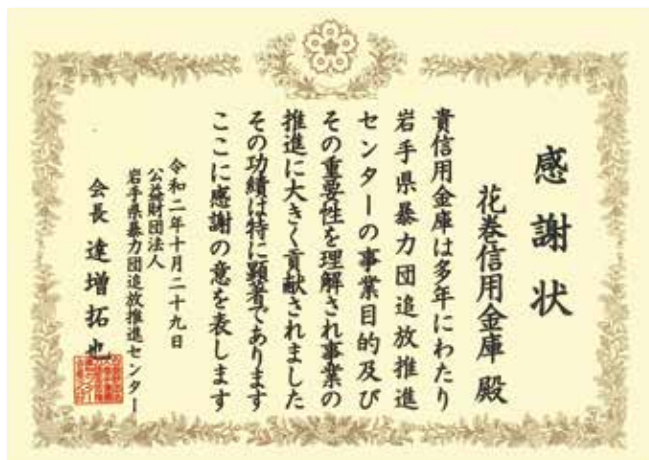 感謝状
花巻信用金庫殿
貴信用金庫は多年にわたり
岩手県暴力団追放推進
センターの事業目的及び
その重要性を理解され事業の
推進に大きく貢献されました
その功績は特に顕著であります
ここに感謝の意を表します
令和二年十月二十九日
公益財団法人
岩手県暴力団追放推進センター
会長 達増拓也